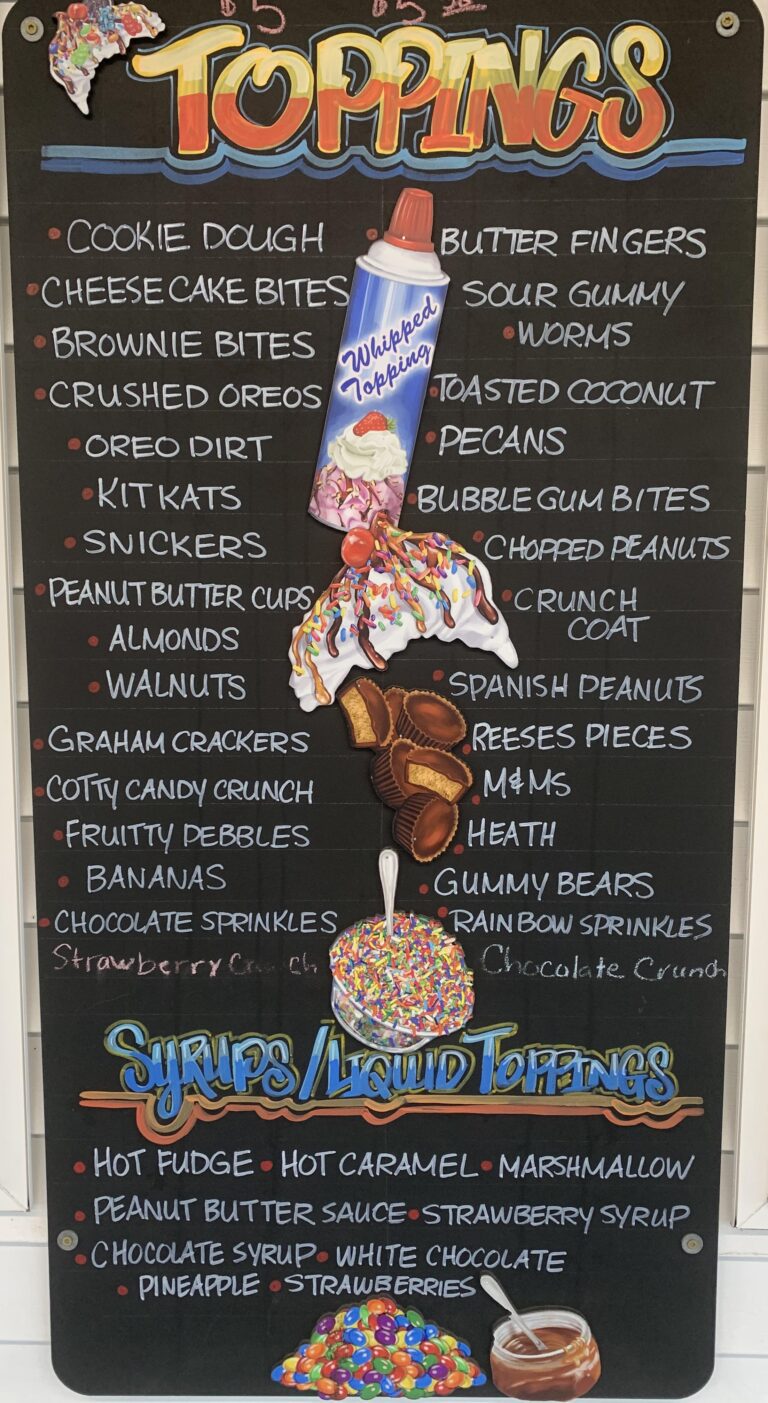 $5 $5
TOPPINGS
COOKIE DOUGH
CHEESECAKE BITES
BROWNIE BITES
CRUSHED OREOS
OREO DIRT
KITKATS
SNICKERS
PEANUT BUTTER CUPS
ALMONDS
WALNUTS
GRAHAM CRACKERS
COTTY CANDY CRUNCH
FRUITTY PEBBLES
BANANAS
CHOCOLATE SPRINKLES
Strawberry Crunch
Whipped
Topping
BUTTER FINGERS
SOUR GUMMY
WORMS
TOASTED COCONUT
PECANS
BUBBLE GUM BITES
CHOPPED PEANUTS
CRUNCH
COAT
SPANISH PEANUTS
REESES PIECES
M&MS
HEATH
GUMMY BEARS
RAINBOW SPRINKLES
Chocolate Crunch
SYRUPS/LIQUID TOPPINGS
HOT FUDGE • HOT CARAMEL • MARSHMALLOW
PEANUT BUTTER SAUCE • STRAWBERRY SYRUP
CHOCOLATE SYRUP • WHITE CHOCOLATE
PINEAPPLE • STRAWBERRIES